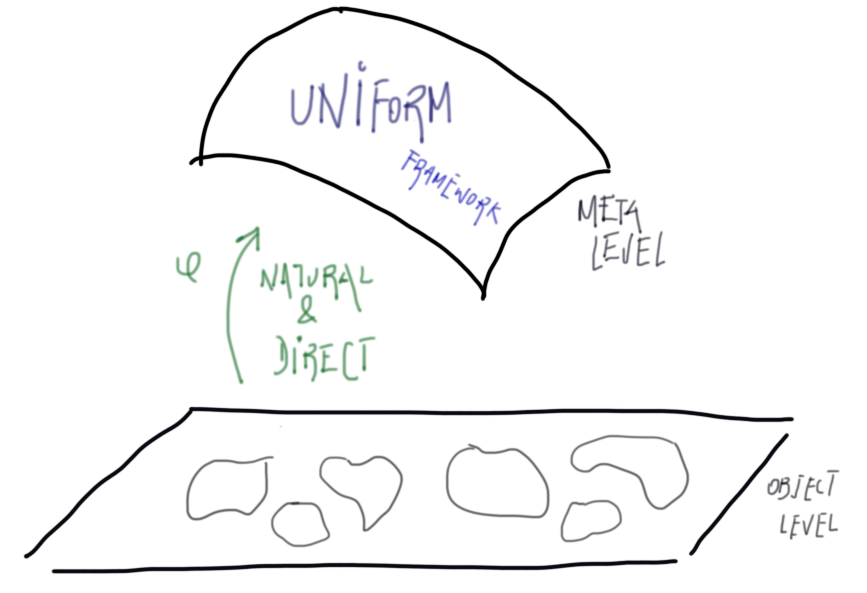 UNIFORM
FRAMEWORK
META
LEVEL
φ
NATURAL
&
DIRECT
OBJECT
LEVEL